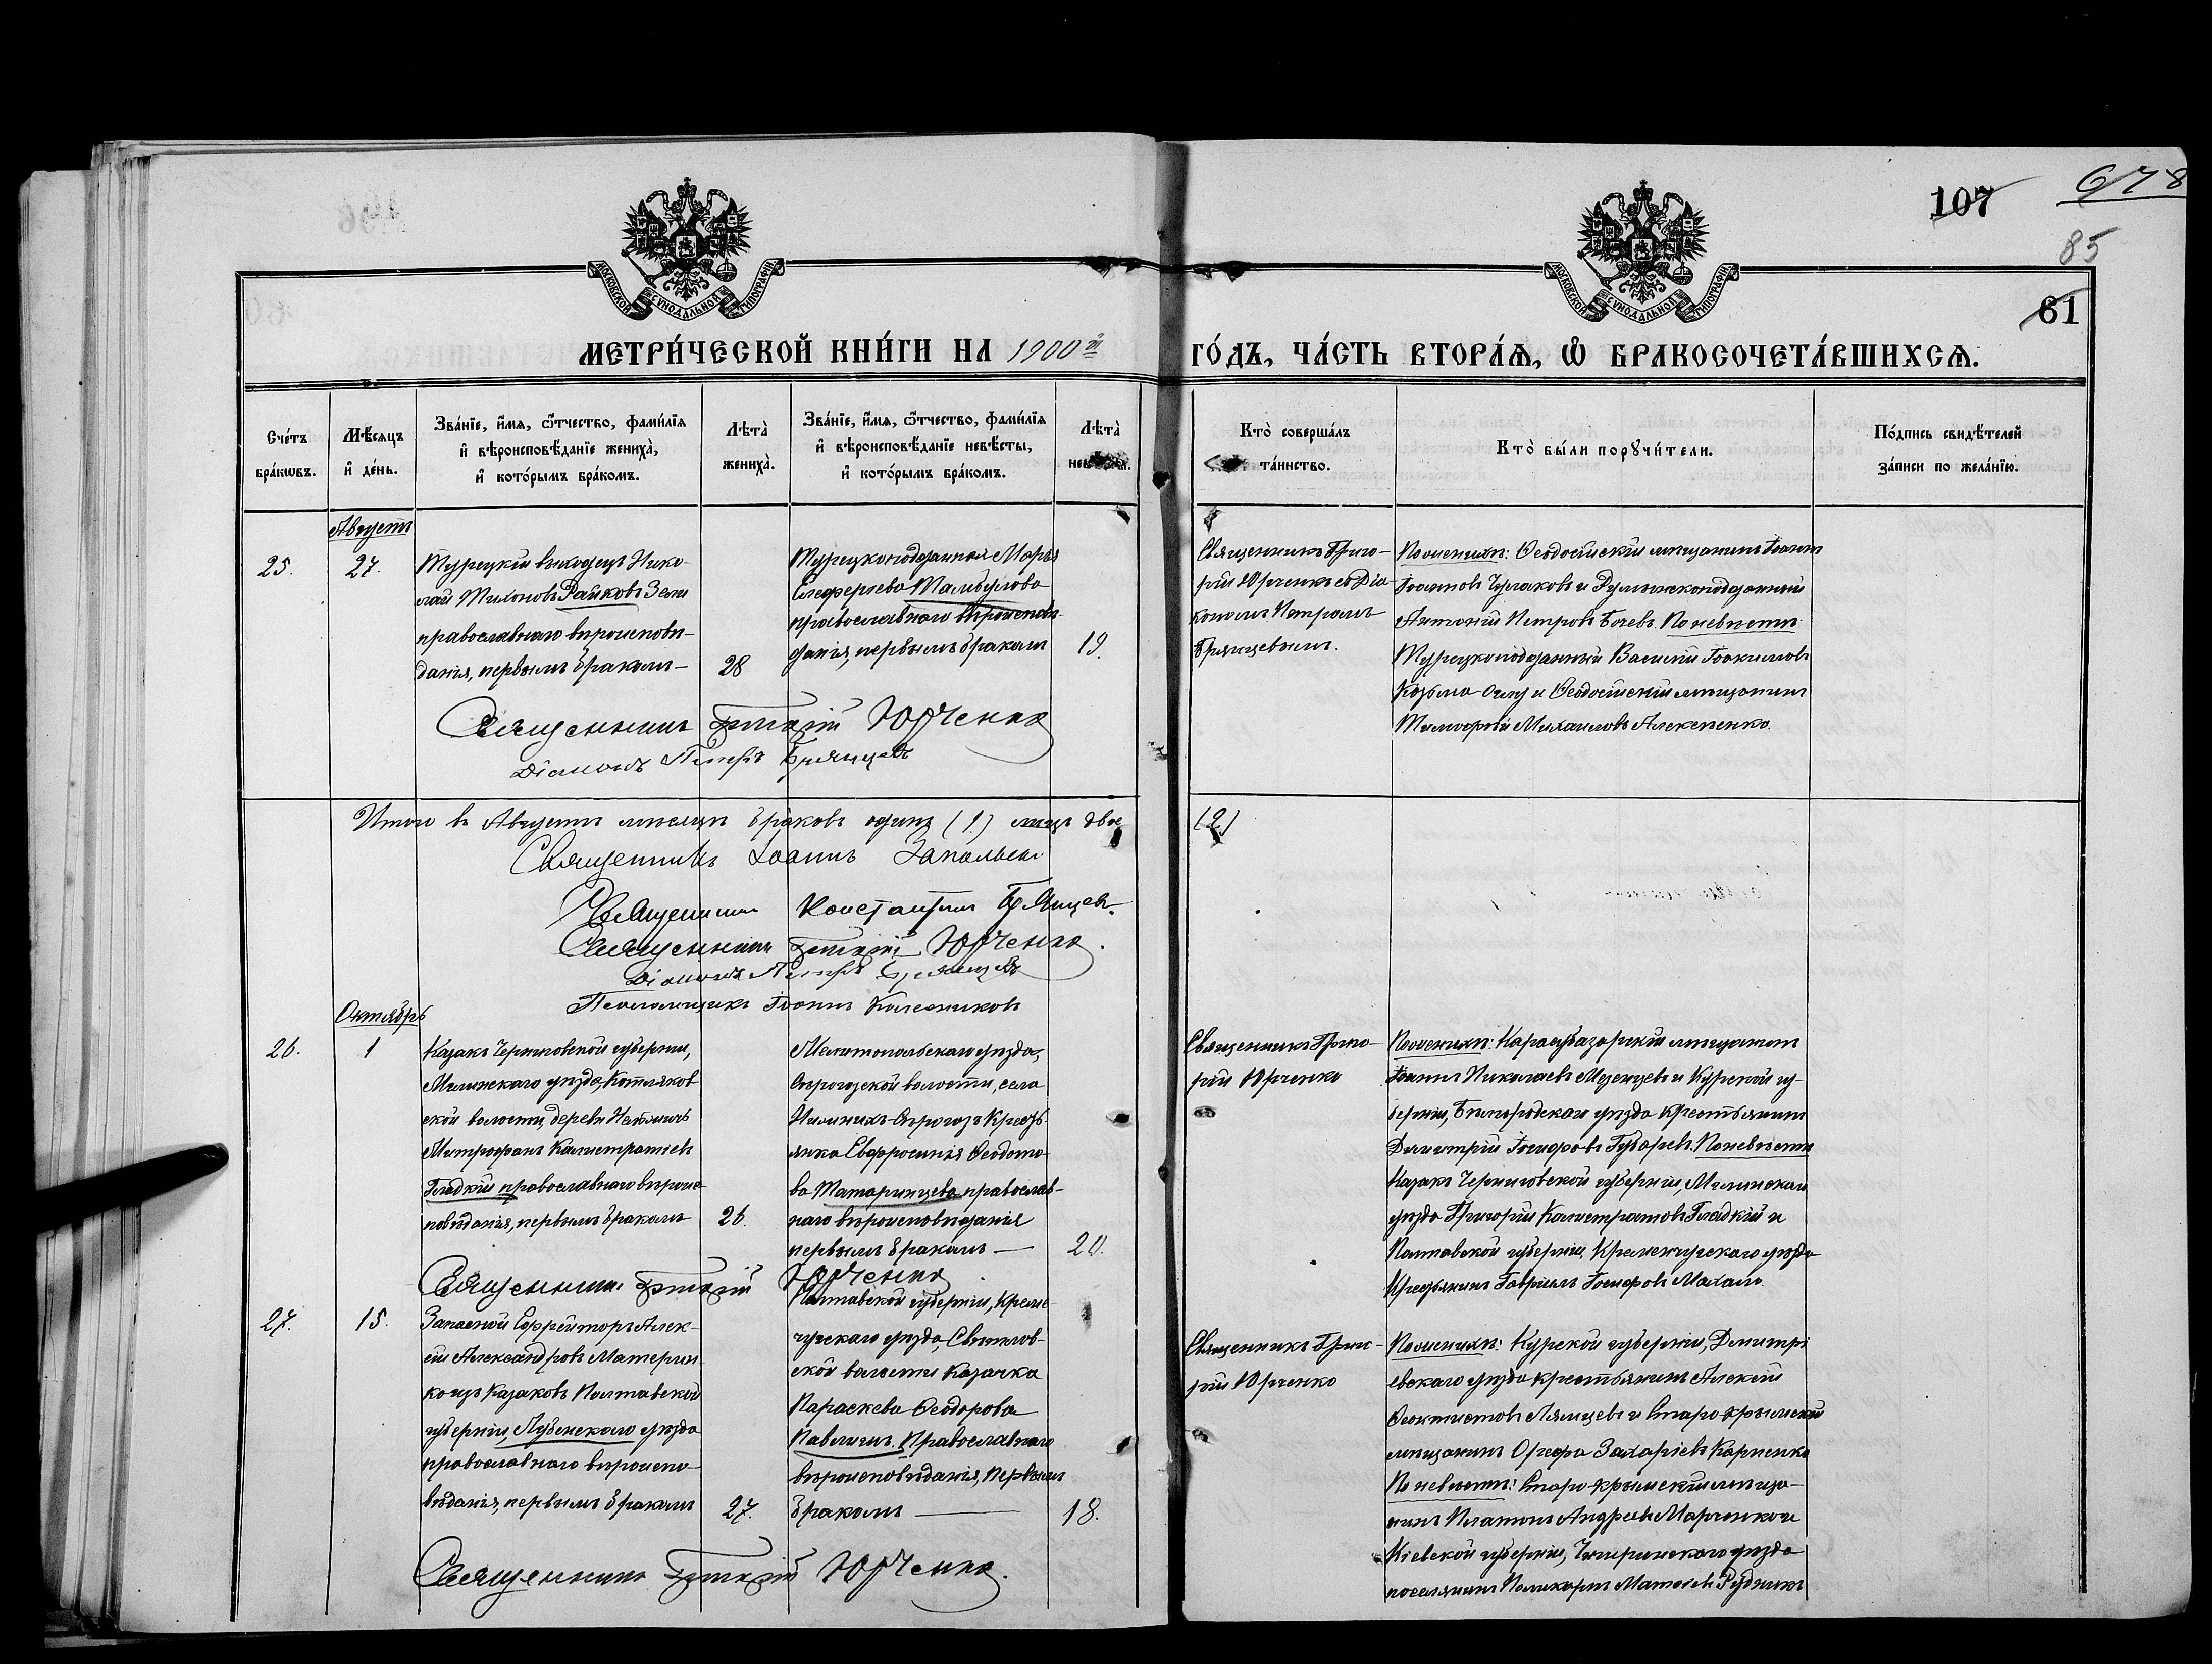 107
678
85
61
МОСКОВСКОЙ СУНОДАЛЬНОЙ ТИПОГРАФІИ
МОСКОВСКОЙ СУНОДАЛЬНОЙ ТИПОГРАФІИ
МЕТРИ́ЧЕСКОЙ КНИ́ГИ НА 1900й ГО́ДЪ, ЧА́СТЬ ВТОРА́Ѧ, Ѽ БРАКОСОЧЕТА́ВШИХСѦ.
Сче́тъ бра́кωвъ.
Мѣ́сяцъ и҆ де́нь.
Зва́нїе, и҆́мя, ѻ҆́тчество, фами́лїя и҆ вѣроисповѣ́данїе жениха̀, и҆ кото́рымъ бра́комъ.
Лѣта̀ жениха̀.
Зва́нїе, и҆́мя, ѻ҆́тчество, фами́лїя и҆ вѣроисповѣ́данїе невѣ́сты, и҆ кото́рымъ бра́комъ.
Лѣта̀
Кто̀ соверша́лъ та́инство.
Кто̀ бы́ли порꙋчи́тели.
По́дпись свидѣ́телей за́писи по жела́нїю.
Августъ
25.
27.
Турецкій выходецъ Нико-
лай Тихоновъ Райковъ
православнаго вѣроисповѣ-
данія, первымъ бракомъ
28
Турецкоподданная Марѳа
православнаго вѣроисповѣ-
данія, первымъ бракомъ
19.
Священникъ Григо-
рій Юрченко съ Діа-
кономъ Петромъ
Брянцевымъ.
По женихѣ: Ѳеодосійскій мѣщанинъ Іоаннъ
Іоанновъ и Румынскоподданный
Антоній Петровъ Бочевъ. По невѣстѣ:
Турецкоподданный Василій Іоакимовъ
и Ѳеодосійскій мѣщанинъ
Тимоѳей Михаиловъ
Священникъ Григорій Юрченко
Діаконъ Петръ Брянцевъ
Итого въ Августѣ мѣсяцѣ браковъ одинъ (1) лицъ двое (2)
Священникъ Іоаннъ
Священникъ Константинъ Брянцевъ.
Священникъ Григорій Юрченко.
Діаконъ Петръ Брянцевъ
Псаломщикъ Іоаннъ Колесниковъ
Октябрь
26.
1
Казакъ Черниговской губерніи,
Мглинскаго уѣзда, Котляков
ской волости, деревни
Митрофанъ Калистратіевъ
Гладкій православнаго вѣроис-
повѣданія, первымъ бракомъ
26.
Мелитопольскаго уѣзда,
Сѣрогозской волости, села
Нижнихъ-Сѣрогозъ кресть-
янка Евфросинія Ѳеодото-
ва Татаринцева православ-
наго вѣроисповѣданія
первымъ бракомъ
20.
Священникъ Григо-
рій Юрченко
По женихѣ: Карасубазарскій мѣщанинъ
Іоаннъ Николаевъ Мезенцевъ и Курской гу-
берніи, Бѣлгородскаго уѣзда крестьянинъ
Димитрій Іосифовъ Губаревъ. По невѣстѣ
Казакъ Черниговской губерніи, Мглинскаго
уѣзда Григорій Калистратовъ Гладкій и
Полтавской губерніи, Кременчугскаго уѣзда
крестьянинъ Гавріилъ Іосифовъ
Священникъ Григорій Юрченко
27.
15.
Запасной Ефрейторъ Алек-
сѣй Александровъ Материн-
ко изъ казаковъ Полтавской
губерніи, Лубенскаго уѣзда
православнаго вѣроиспо-
вѣданія, первымъ бракомъ
27.
Полтавской губерніи, Кремен-
чугскаго уѣзда,
ской волости казачка
Параскева Ѳеодорова
Павличъ. Православнаго
вѣроисповѣданія, первымъ
бракомъ
18.
Священникъ Григо-
рій Юрченко
По женихѣ: Курской губерніи, Дмитрі
евскаго уѣзда крестьянинъ Алексій
Ѳеоктистовъ и Старо-Крымскій
мѣщанинъ Захаріевъ Карпенко
По невѣстѣ: Старо-крымскій мѣща-
нинъ Платонъ Андреевъ Марченко и
Кіевской губерніи, Чигиринскаго уѣзда
поселянинъ Поликарпъ Матѳіевъ
Священникъ Григорій Юрченко.